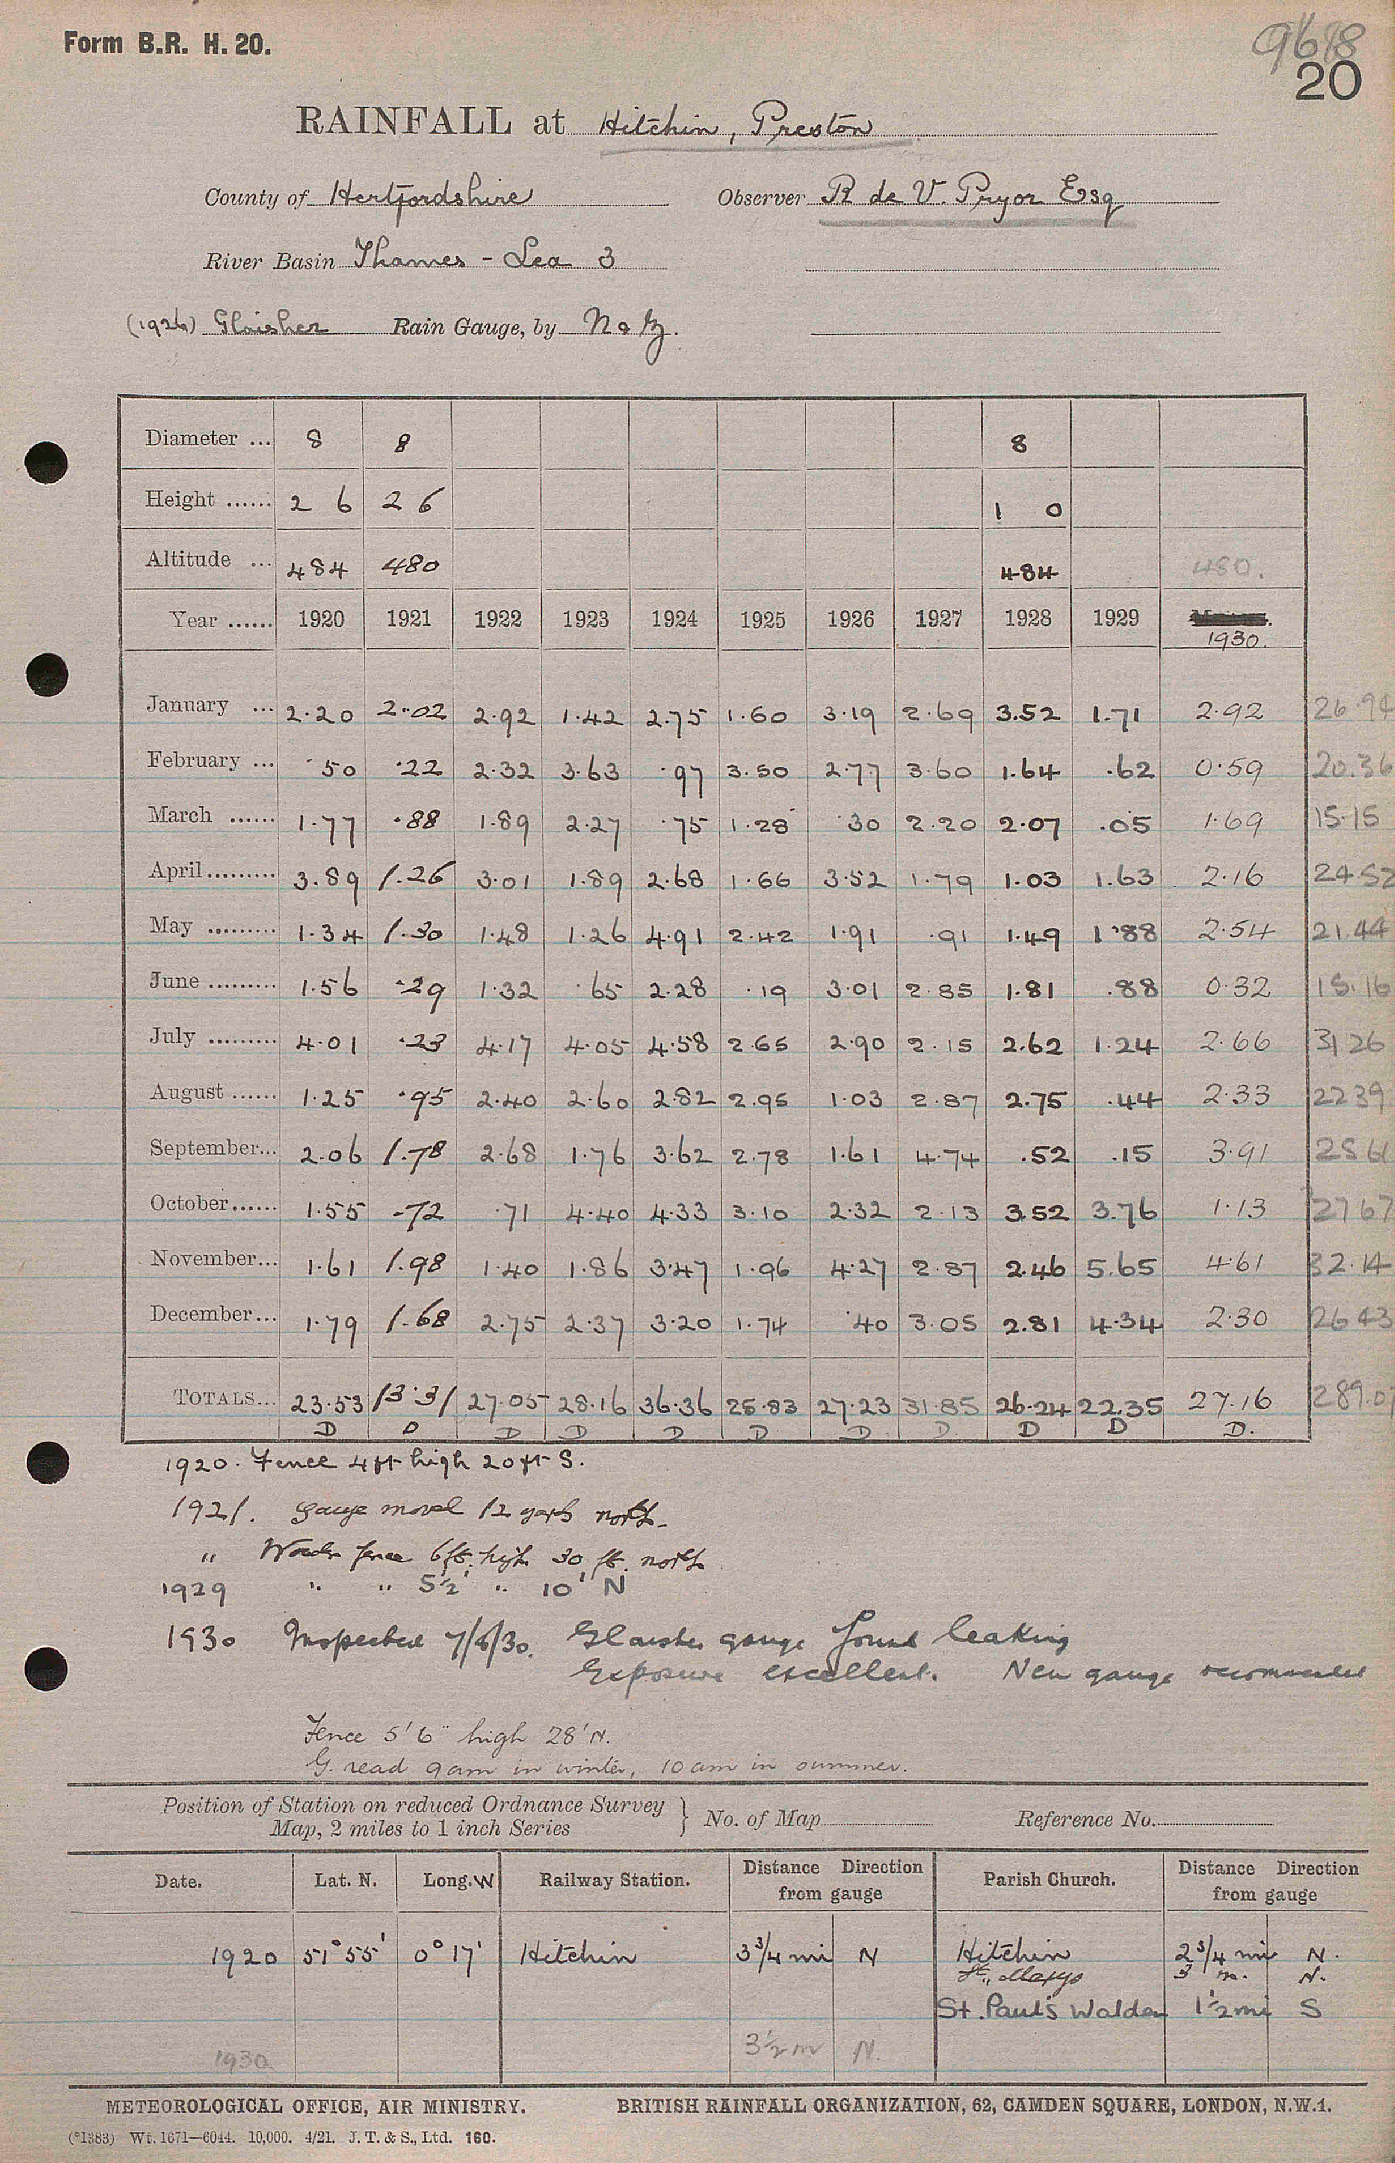 Form B.R. H. 20.
9618
20
RAINFALL at Hitchin, Preston
County of Hertfordshire Observer R de V. Pryor Esq
River Basin Thames - Lea 3
(1926) Glaisher Rain Gauge, by N & Z.
Diameter ... 8 8 8
Height ...... 2 6 2 6 1 0
Altitude ... 484 480 484 480.
Year ...... 1920 1921 1922 1923 1924 1925 1926 1927 1928 1929 1930.
January ... 2.20 2.02 2.92 1.42 2.75 1.60 3.19 2.69 3.52 1.71 2.92 26.94
February ... .50 .22 2.32 3.63 .97 3.50 2.77 3.60 1.64 .62 0.59 20.36
March ...... 1.77 .88 1.89 2.27 .75 1.28 .30 2.20 2.07 .05 1.69 15.15
April ......... 3.89 1.26 3.01 1.89 2.68 1.66 3.52 1.79 1.03 1.63 2.16 24.52
May ......... 1.34 1.30 1.48 1.26 4.91 2.42 1.91 .91 1.49 1.88 2.54 21.44
June ......... 1.56 .29 1.32 .65 2.28 .19 3.01 2.85 1.81 .88 0.32 15.16
July ......... 4.01 .23 4.17 4.05 4.58 2.65 2.90 2.15 2.62 1.24 2.66 31.26
August ...... 1.25 .95 2.40 2.60 2.82 2.95 1.03 2.87 2.75 .44 2.33 22.39
September... 2.06 1.78 2.68 1.76 3.62 2.78 1.61 4.74 .52 .15 3.91 25.61
October ...... 1.55 .72 .71 4.40 4.33 3.10 2.32 2.13 3.52 3.76 1.13 27.67
November... 1.61 1.98 1.40 1.86 3.47 1.96 4.27 2.87 2.46 5.65 4.61 32.14
December... 1.79 1.68 2.75 2.37 3.20 1.74 .40 3.05 2.81 4.34 2.30 26.43
TOTALS... 23.53 13.31 27.05 28.16 36.36 25.83 27.23 31.85 26.24 22.35 27.16 289.0
D D D D D D D D D D D.
1920. Fence 4ft high 20ft S.
1921. gauge moved 12 yards north.
" Wooden fence 6ft. high 30 ft. north
1929 " " 5½' " 10' N
1930 Inspected 7/6/30. Glaisher gauge found leaking
Exposure excellent. New gauge recommended
Fence 5'6" high 28'N.
G. read 9am in winter, 10 am in summer.
Position of Station on reduced Ordnance Survey
Map, 2 miles to 1 inch Series } No. of Map Reference No.
Date. Lat. N. Long. W Railway Station. Distance Direction from gauge Parish Church. Distance Direction from gauge
1920 51° 55' 0° 17' Hitchin 3¾ mi N Hitchin 2¾ mi N.
St. Marys 3 m. N.
St. Paul's Walden 1½ mi S
1930 3½ m N.
METEOROLOGICAL OFFICE, AIR MINISTRY. BRITISH RAINFALL ORGANIZATION, 62, CAMDEN SQUARE, LONDON, N.W.1.
(*1383) Wt. 1671—6044. 10,000. 4/21. J. T. & S., Ltd. 160.